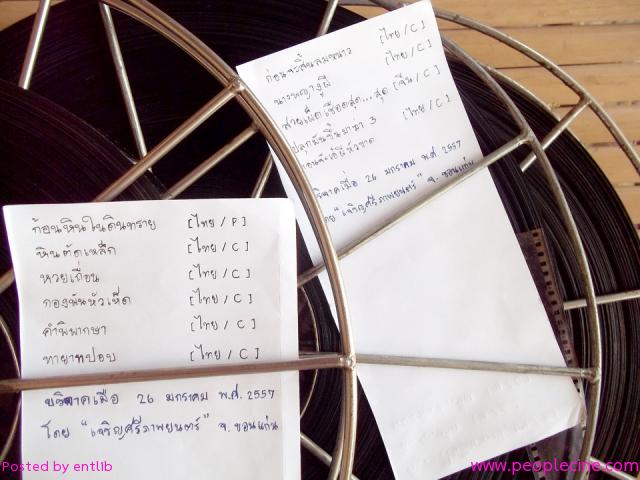 ก้อนหินในดินทราย [ไทย / P]
หินตัดเหล็ก [ไทย / C]
หวยเถื่อน [ไทย / C]
กองพันหัวเห็ด [ไทย / C]
คำพิพากษา [ไทย / C]
ทายาทปอบ [ไทย / C]
บริจาคเมื่อ 26 มกราคม พ.ศ. 2557
โดย "เจริญศรีภาพยนตร์" จ. ขอนแก่น
ก่อนจะสิ้นลมหนาว [ไทย / C]
นางพญางูผี [ไทย / C]
สวยเผ็ดเชือดสุด...สุด [จีน / C]
ปลุกมันขึ้นมาฆ่า 3 [ไทย / C]
26 มกราคม พ.ศ 2557
"เจริญศรีภาพยนตร์" จ. ขอนแก่น
Posted by entlib
www.peoplecine.com